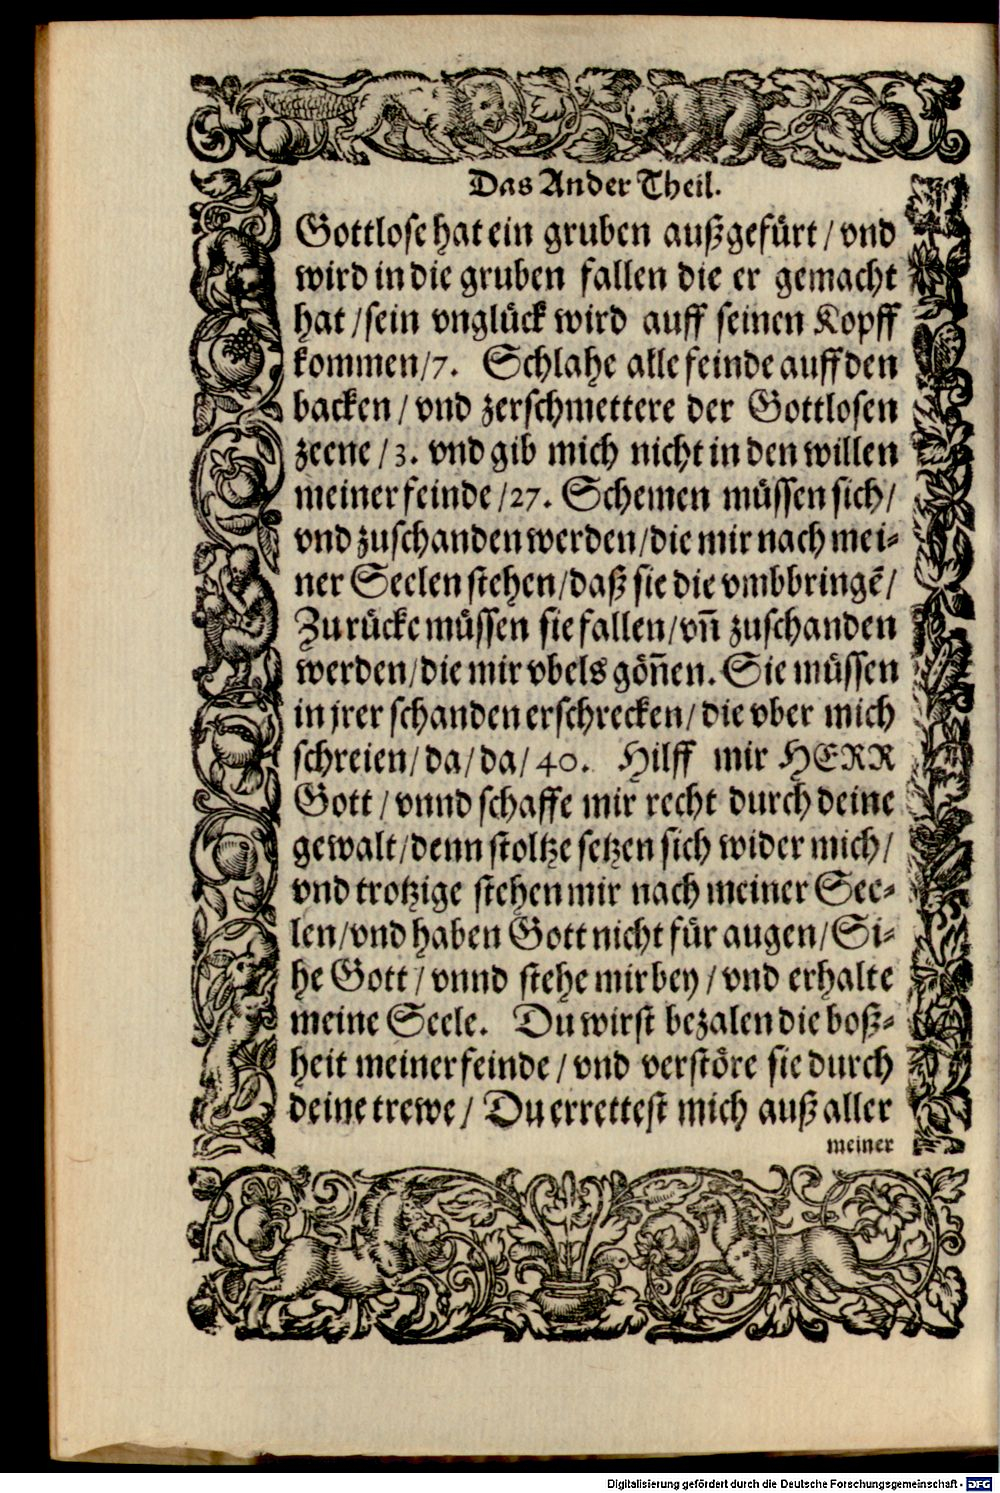 Das Ander Theil.
Gottlose hat ein gruben außgefürt / vnd
wird in die gruben fallen die er gemacht
hat / sein vnglück wird auff seinen Kopff
kommen / 7. Schlahe alle feinde auff den
backen / vnd zerschmettere der Gottlosen
zeene / 3. vnd gib mich nicht in den willen
meiner feinde / 27. Schemen müssen sich /
vnd zuschanden werden / die mir nach mei⸗
ner Seelen stehen / daß sie die vmbbringē /
Zu rücke müssen sie fallen / vn̄ zuschanden
werden / die mir vbels gön̄en. Sie müssen
in jrer schanden erschrecken / die vber mich
schreien / da / da / 40. Hilff mir HERR
Gott / vnnd schaffe mir recht durch deine
gewalt / denn stoltze setzen sich wider mich /
vnd trotzige stehen mir nach meiner See⸗
len / vnd haben Gott nicht für augen / Si⸗
he Gott / vnnd stehe mir bey / vnd erhalte
meine Seele. Du wirst bezalen die boß⸗
heit meiner feinde / vnd verstöre sie durch
deine trewe / Du errettest mich auß aller
meiner
Digitalisierung gefördert durch die Deutsche Forschungsgemeinschaft - DFG